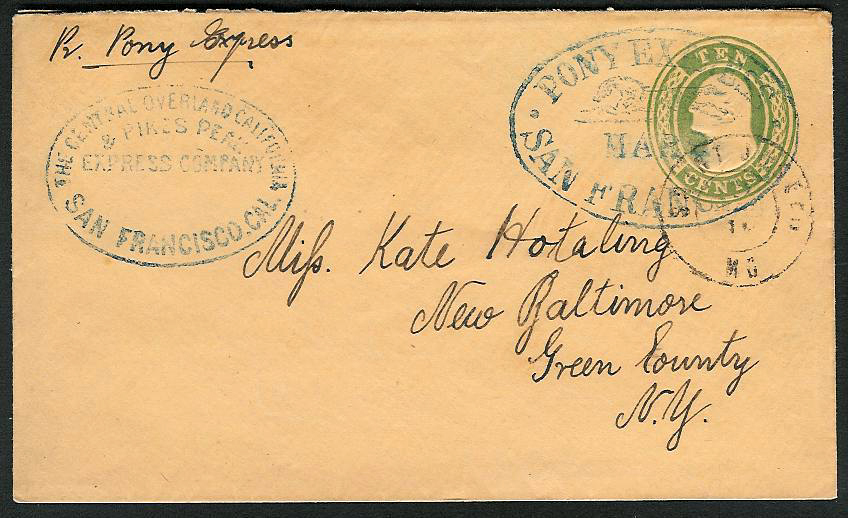 Pr. Pony Express
THE CENTRAL OVERLAND CALIFORNIA
& PIKES PEAK
EXPRESS COMPANY
SAN FRANCISCO.CAL.
PONY EX
SAN FRAN
TEN
CENTS
MO
Miſs. Kate Hotaling
New Baltimore
Green County
N.Y.